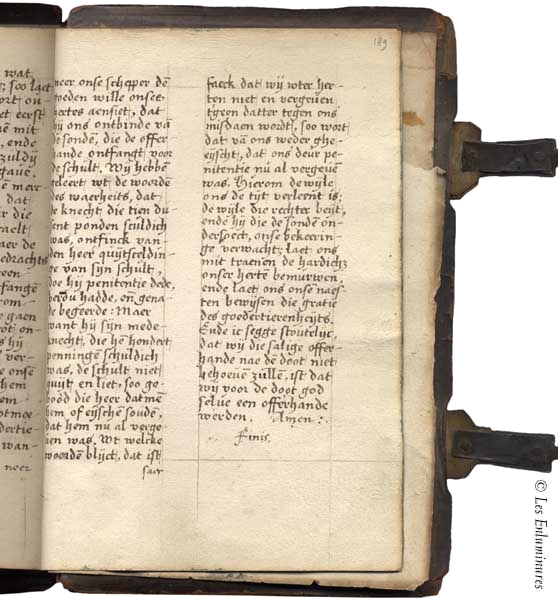 189
wat
soo laet
eerst
mit
ende
gaue.
mer
dat
die
der de
een
gaen
hij
ver-
onse
hem
wan-
neer
neer onse schepper dē
goeden wille onset
hertes aensiet, dat
hij ons ontbinde vā
de sonden, die de offer
hande ontfangt voor
de schult. Wij hebbē
geleert wt de woordē
des waerheits, dat
de knecht die tien du
sent ponden sculdich
was, ontfinck van
den heer quijtsceldin
ge van sijn schult,
doe hij penitentie dede,
berou hadde, en gena
de begeerde: Maer
want hij sijn mede
knecht, die hē hondert
penningē schuldich
was, de schult niet
quijt en liet, soo ge-
boōd die heer datmē
hem of eijschē soude,
dat hem nu al verge
uen was. Wt welche
woordē blijct, dat ist
saer
faeck dat wij wter her-
ten niet en vergeuen
tgeen datter tegen ons
misdaen wordt, soo wort
dat vā ons weder ghe-
eijscht, dat ons deur pe-
nitentie nu al vergeuē
was. Hierom de wijle
ons de tijt verleent is;
de wijle die rechter beijt,
ende hij die de sonde on-
dersoect, onse bekeerin-
ge verwacht; laet ons
mit traenen de hardich3
onser hertē bemurwen
ende laet ons onse naes-
ten bewijsen die gratie
des goedertierenheijts.
Ende ic segge stoutelijc,
dat wij die salige offer-
hande nae dē doot niet
behoeuē zullē, ist dat
wij voor de doot god
selue een offerhande
werden. Amen :.
Finis.
© Les Enluminures